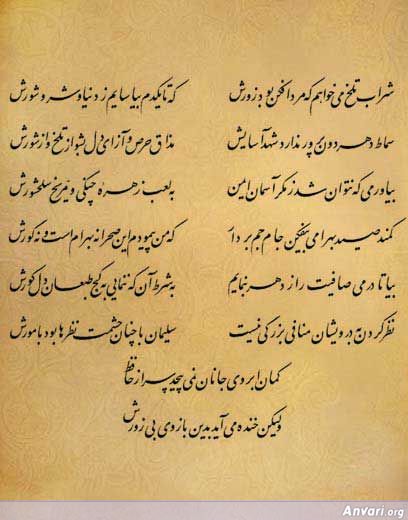 شراب تلخ می‌خواهم که مردافکن بود زورش که تا یکدم بیاسایم ز دنیا و شر و شورش
سماط دهر دون پرور ندارد شهد آسایش مذاق حرص و آز ای دل بشو از تلخ و از شورش
بیاور می که نتوان شد ز مکر آسمان ایمن به لعب زهره چنگی و مریخ سلحشورش
کمند صید بهرامی بیفکن جام جم بردار که من پیمودم این صحرا نه بهرام است و نه گورش
بیا تا در می صافیت راز دهر بنمایم به شرط آن که ننمایی به کج طبعان دل کورش
نظر کردن به درویشان منافی بزرگی نیست سلیمان با چنان حشمت نظرها بود با مورش
کمان ابروی جانان نمی‌پیچد سر از حافظ
ولیکن خنده می‌آید بدین بازوی بی زورش
Anvari.org